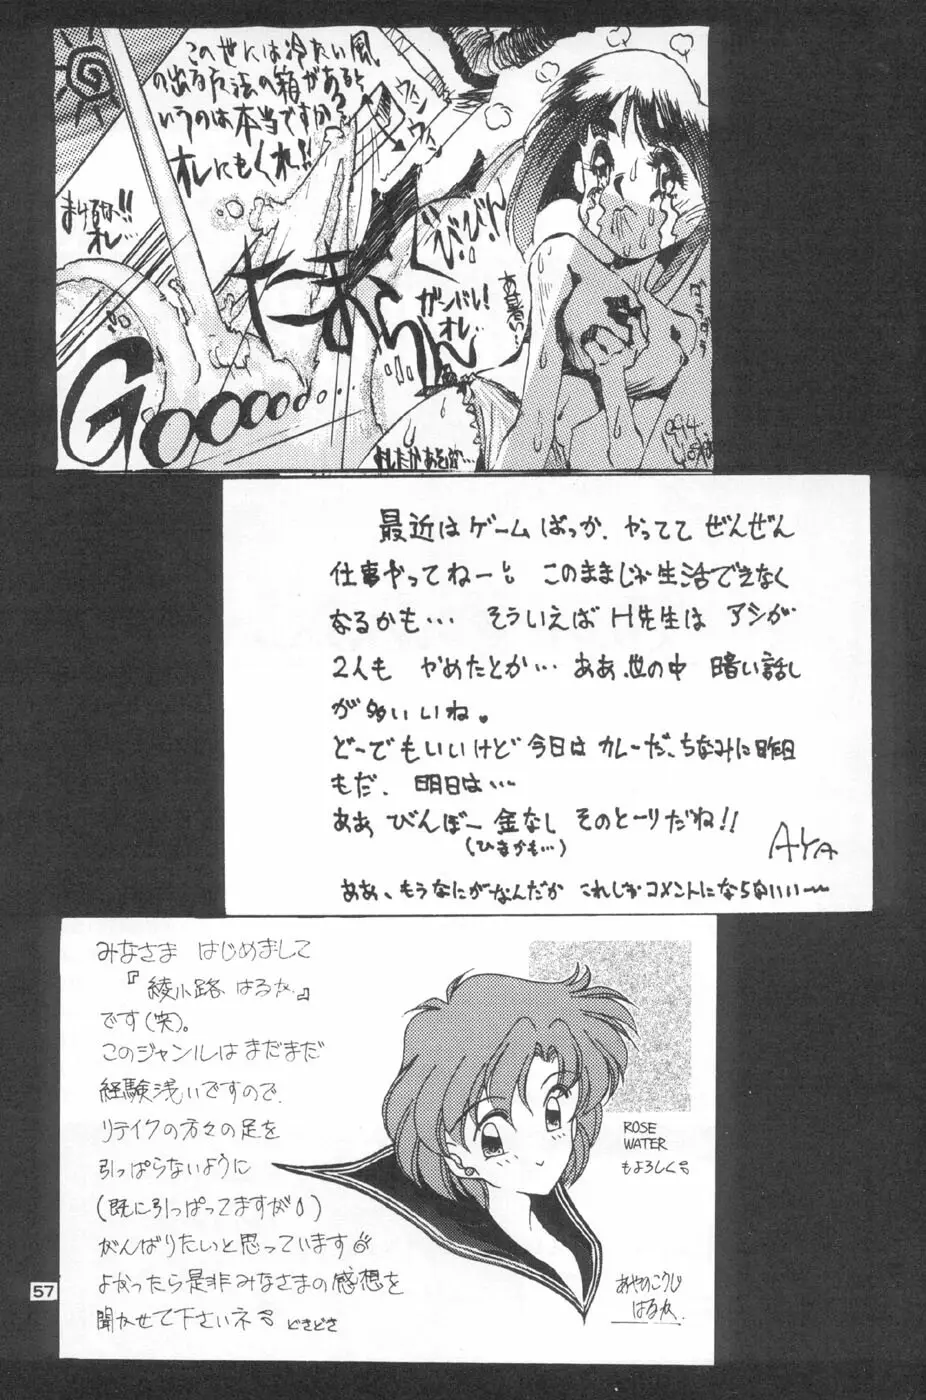 この世には冷たい風
の出る魔法の箱があると
いうのは本当ですか?
オレにもくれ!!
ウィン
ウィン
まけるな!!
オレ…
びんびん!!
ガンバレ!
オレ…
あ暑い…
たまらん…
Goooooo…
最近はゲームばっか、やってて ぜんぜん
仕事やってねーと このままじゃ生活できなく
なるかも… そういえば H先生は アシが
2人も やめたとか… ああ、世の中 暗い話し
が多いいね。
どーでもいいけど今日は カレーだ、ちなみに昨日
もだ、明日は…
ああ びんぼー 金なし そのとーりだね!!
(ひまかも…)
AYA
ああ、もうなにがなんだか これじゃコメントにならないいー
みなさま はじめまして
『綾小路 はるか』
です(笑)。
このジャンルは まだまだ
経験浅いですので、
リテイクの方々の足を
引っぱらないように
(既に引っぱってますが)
がんばりたいと思っています
よかったら是非みなさまの感想を
聞かせて下さいネ どきどき
ROSE
WATER
もよろしく
あやのこうじ
はるか
57